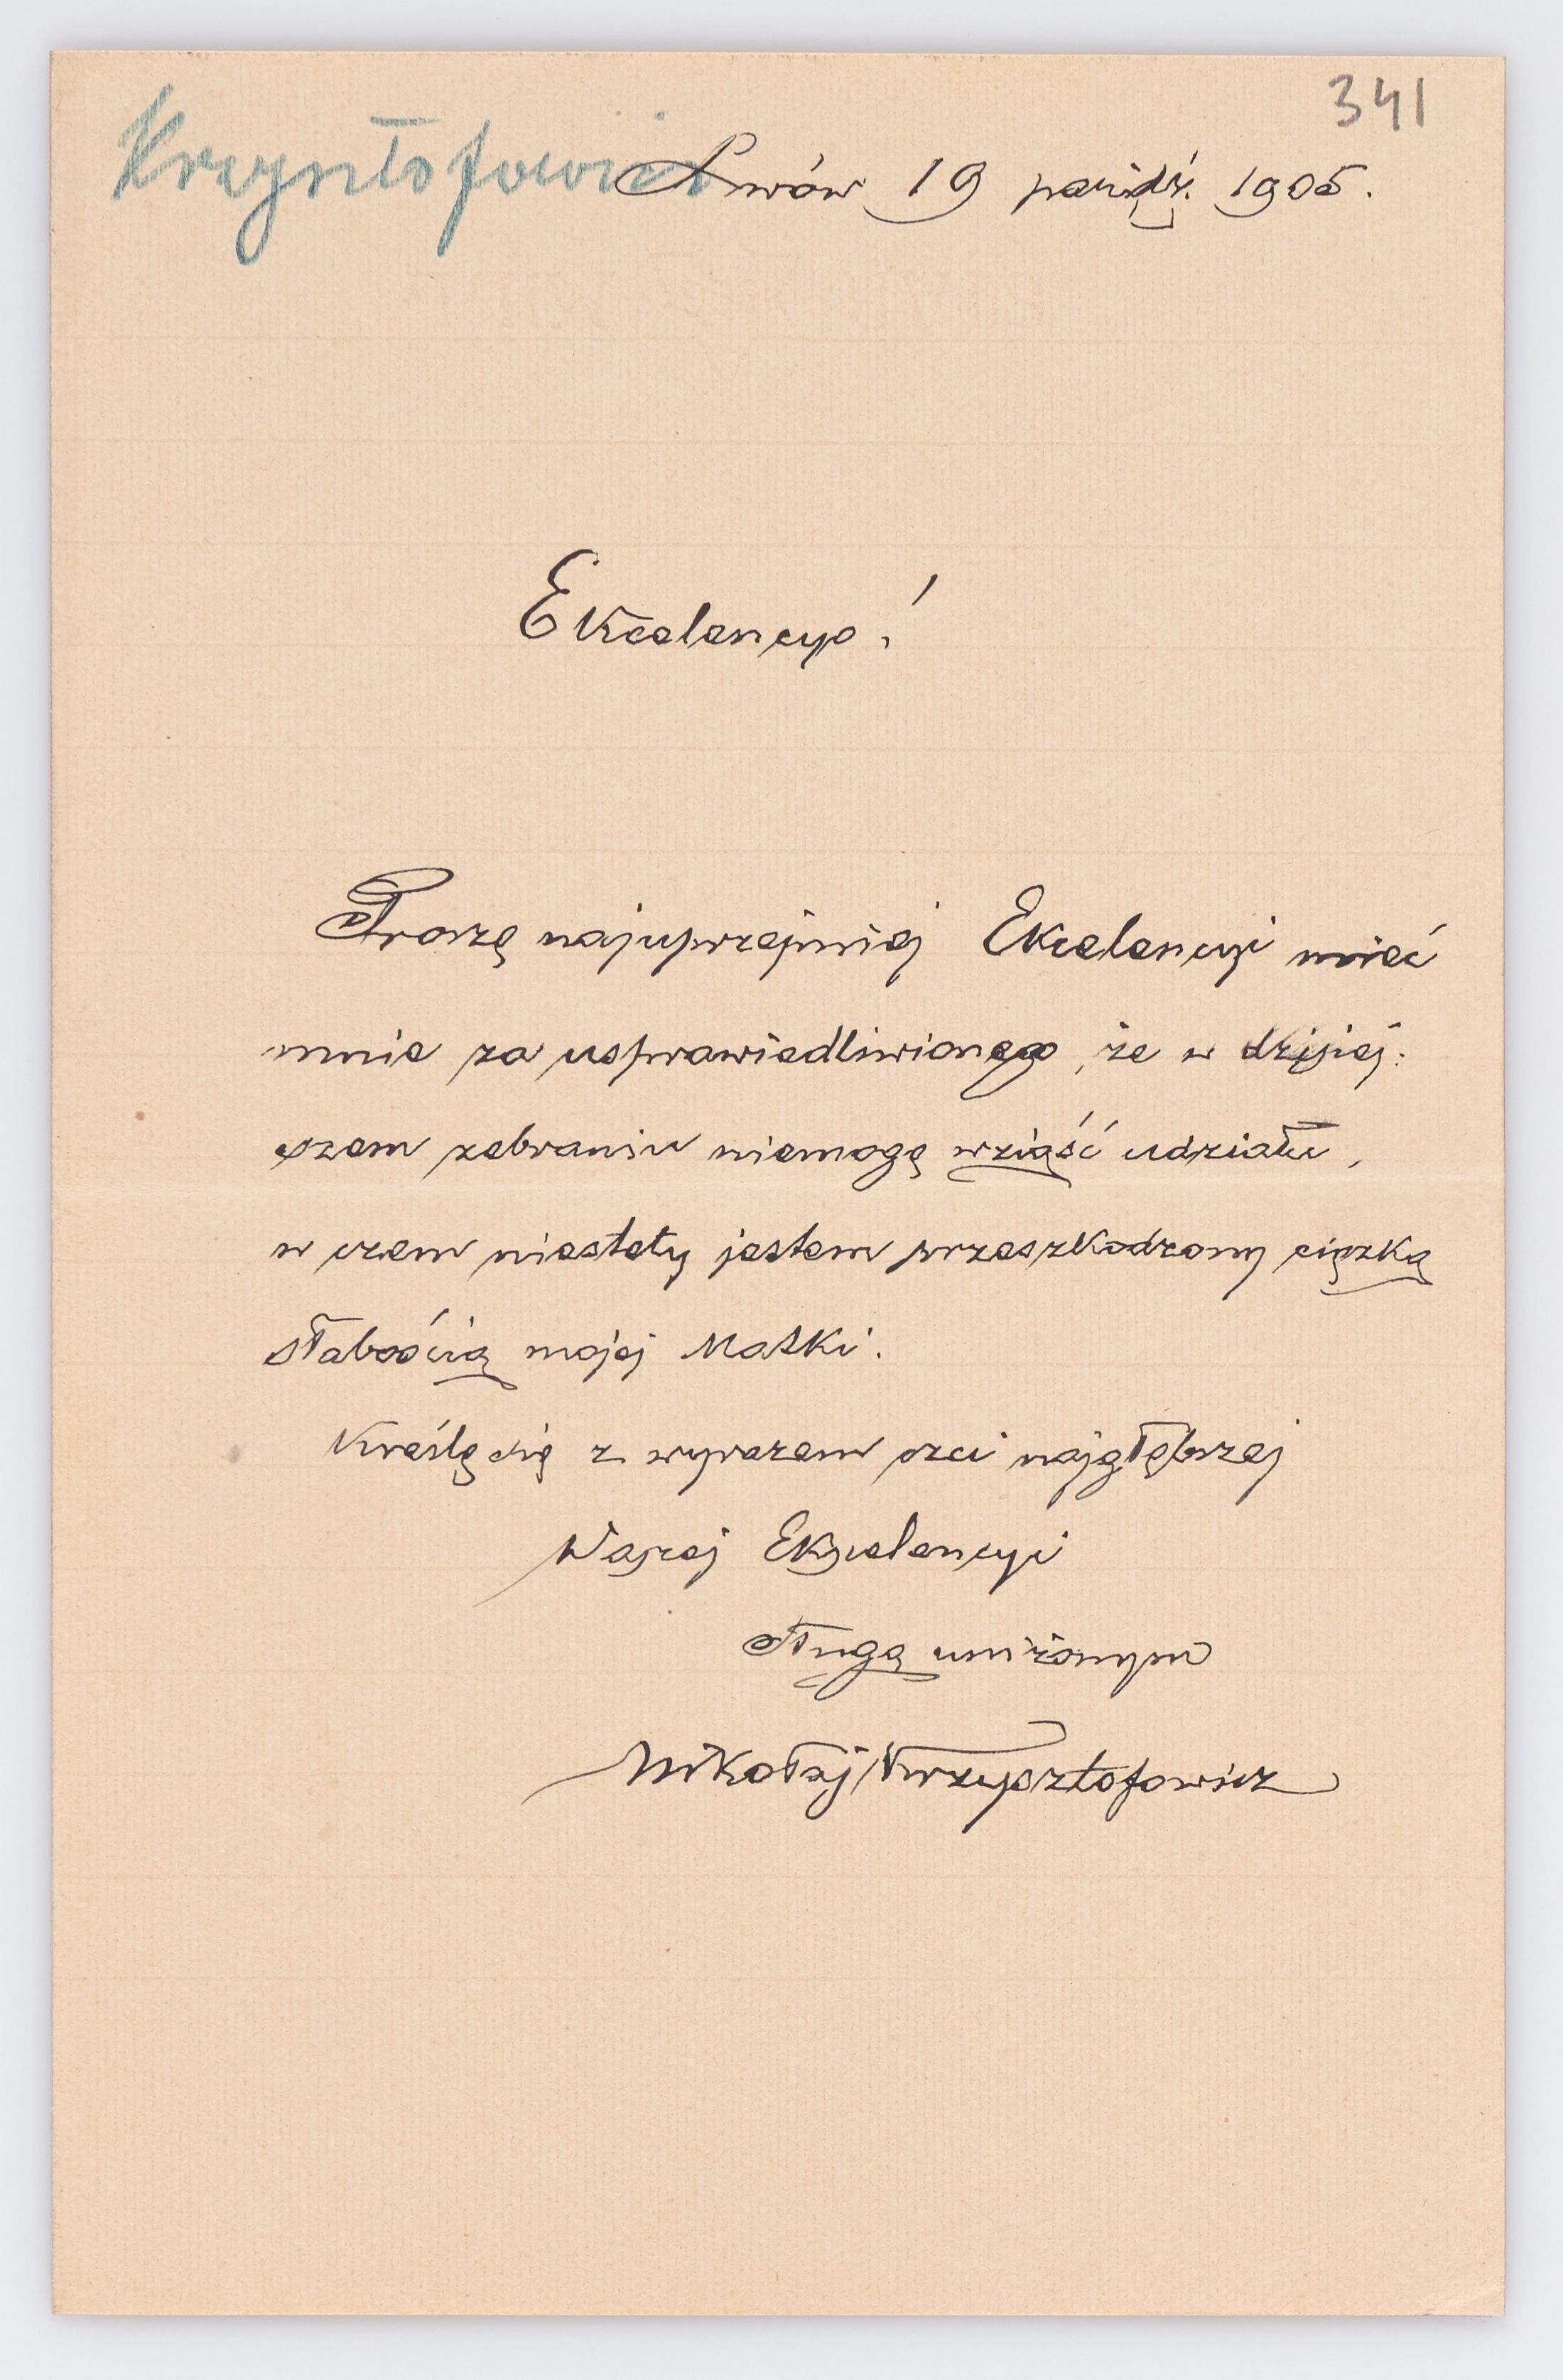 341
Krzysztofowicz
Lwów 19 paźdź. 1905.
Ekscelencyo!
Proszę najuprzejmiej Ekscelencyi mieć
mnie za usprawiedliwionego, że w dzisiej:
szem zebraniu niemogę wziąść udziału,
w czem niestety jestem przeszkodzony ciężką
słabością mojej Matki.
Kreślę się z wyrazem czci najgłębszej
Waszej Ekscelencyi
sługą uniżonym
Mikołaj Krzysztofowicz